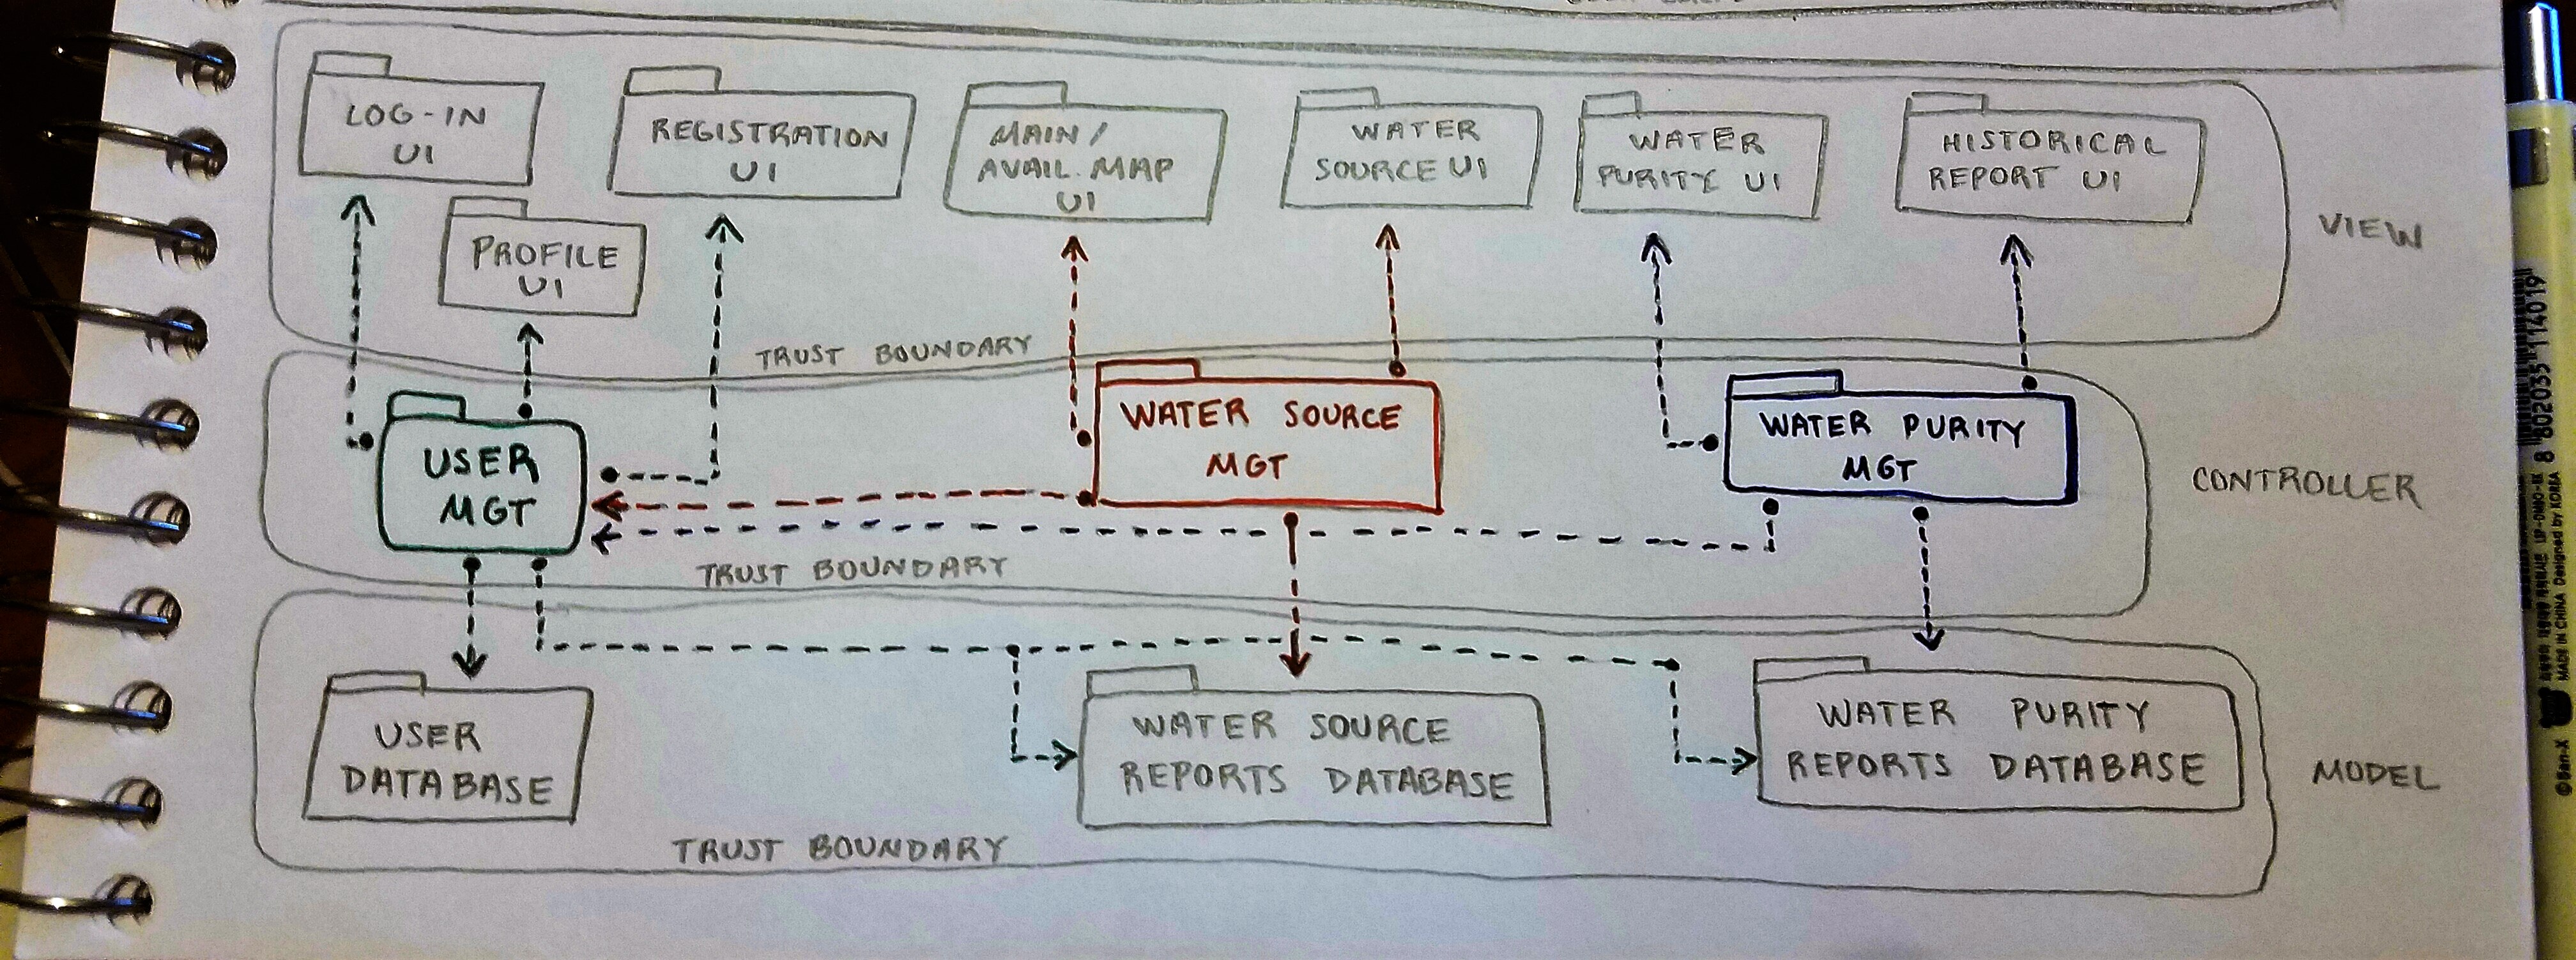 LOG-IN
UI
REGISTRATION
UI
MAIN/
AVAIL. MAP
UI
WATER
SOURCE UI
WATER
PURITY UI
HISTORICAL
REPORT UI
PROFILE
UI
VIEW
TRUST BOUNDARY
USER
MGT
WATER SOURCE
MGT
WATER PURITY
MGT
CONTROLLER
TRUST BOUNDARY
USER
DATABASE
WATER SOURCE
REPORTS DATABASE
WATER PURITY
REPORTS DATABASE
MODEL
TRUST BOUNDARY
8 802035 114019
MADE IN CHINA Designed by KOREA